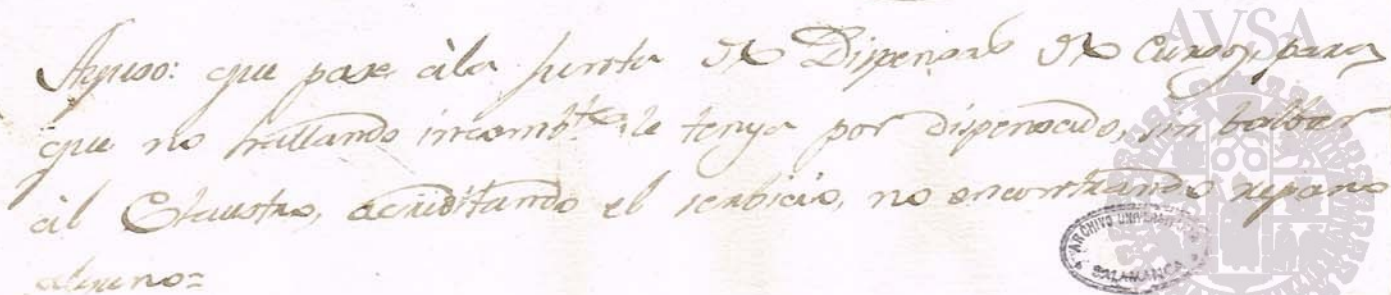 Ayuso: que pase àla Junta de Dispensas de Cursos, para
que no hallando incombte. le tenga por dispensado, sin bolber
àl Claustro, acreditando el serbicio, no encontrando reparo
alguno=
AVSA
ARCHIVO UNIVERSITARIO
SALAMANCA